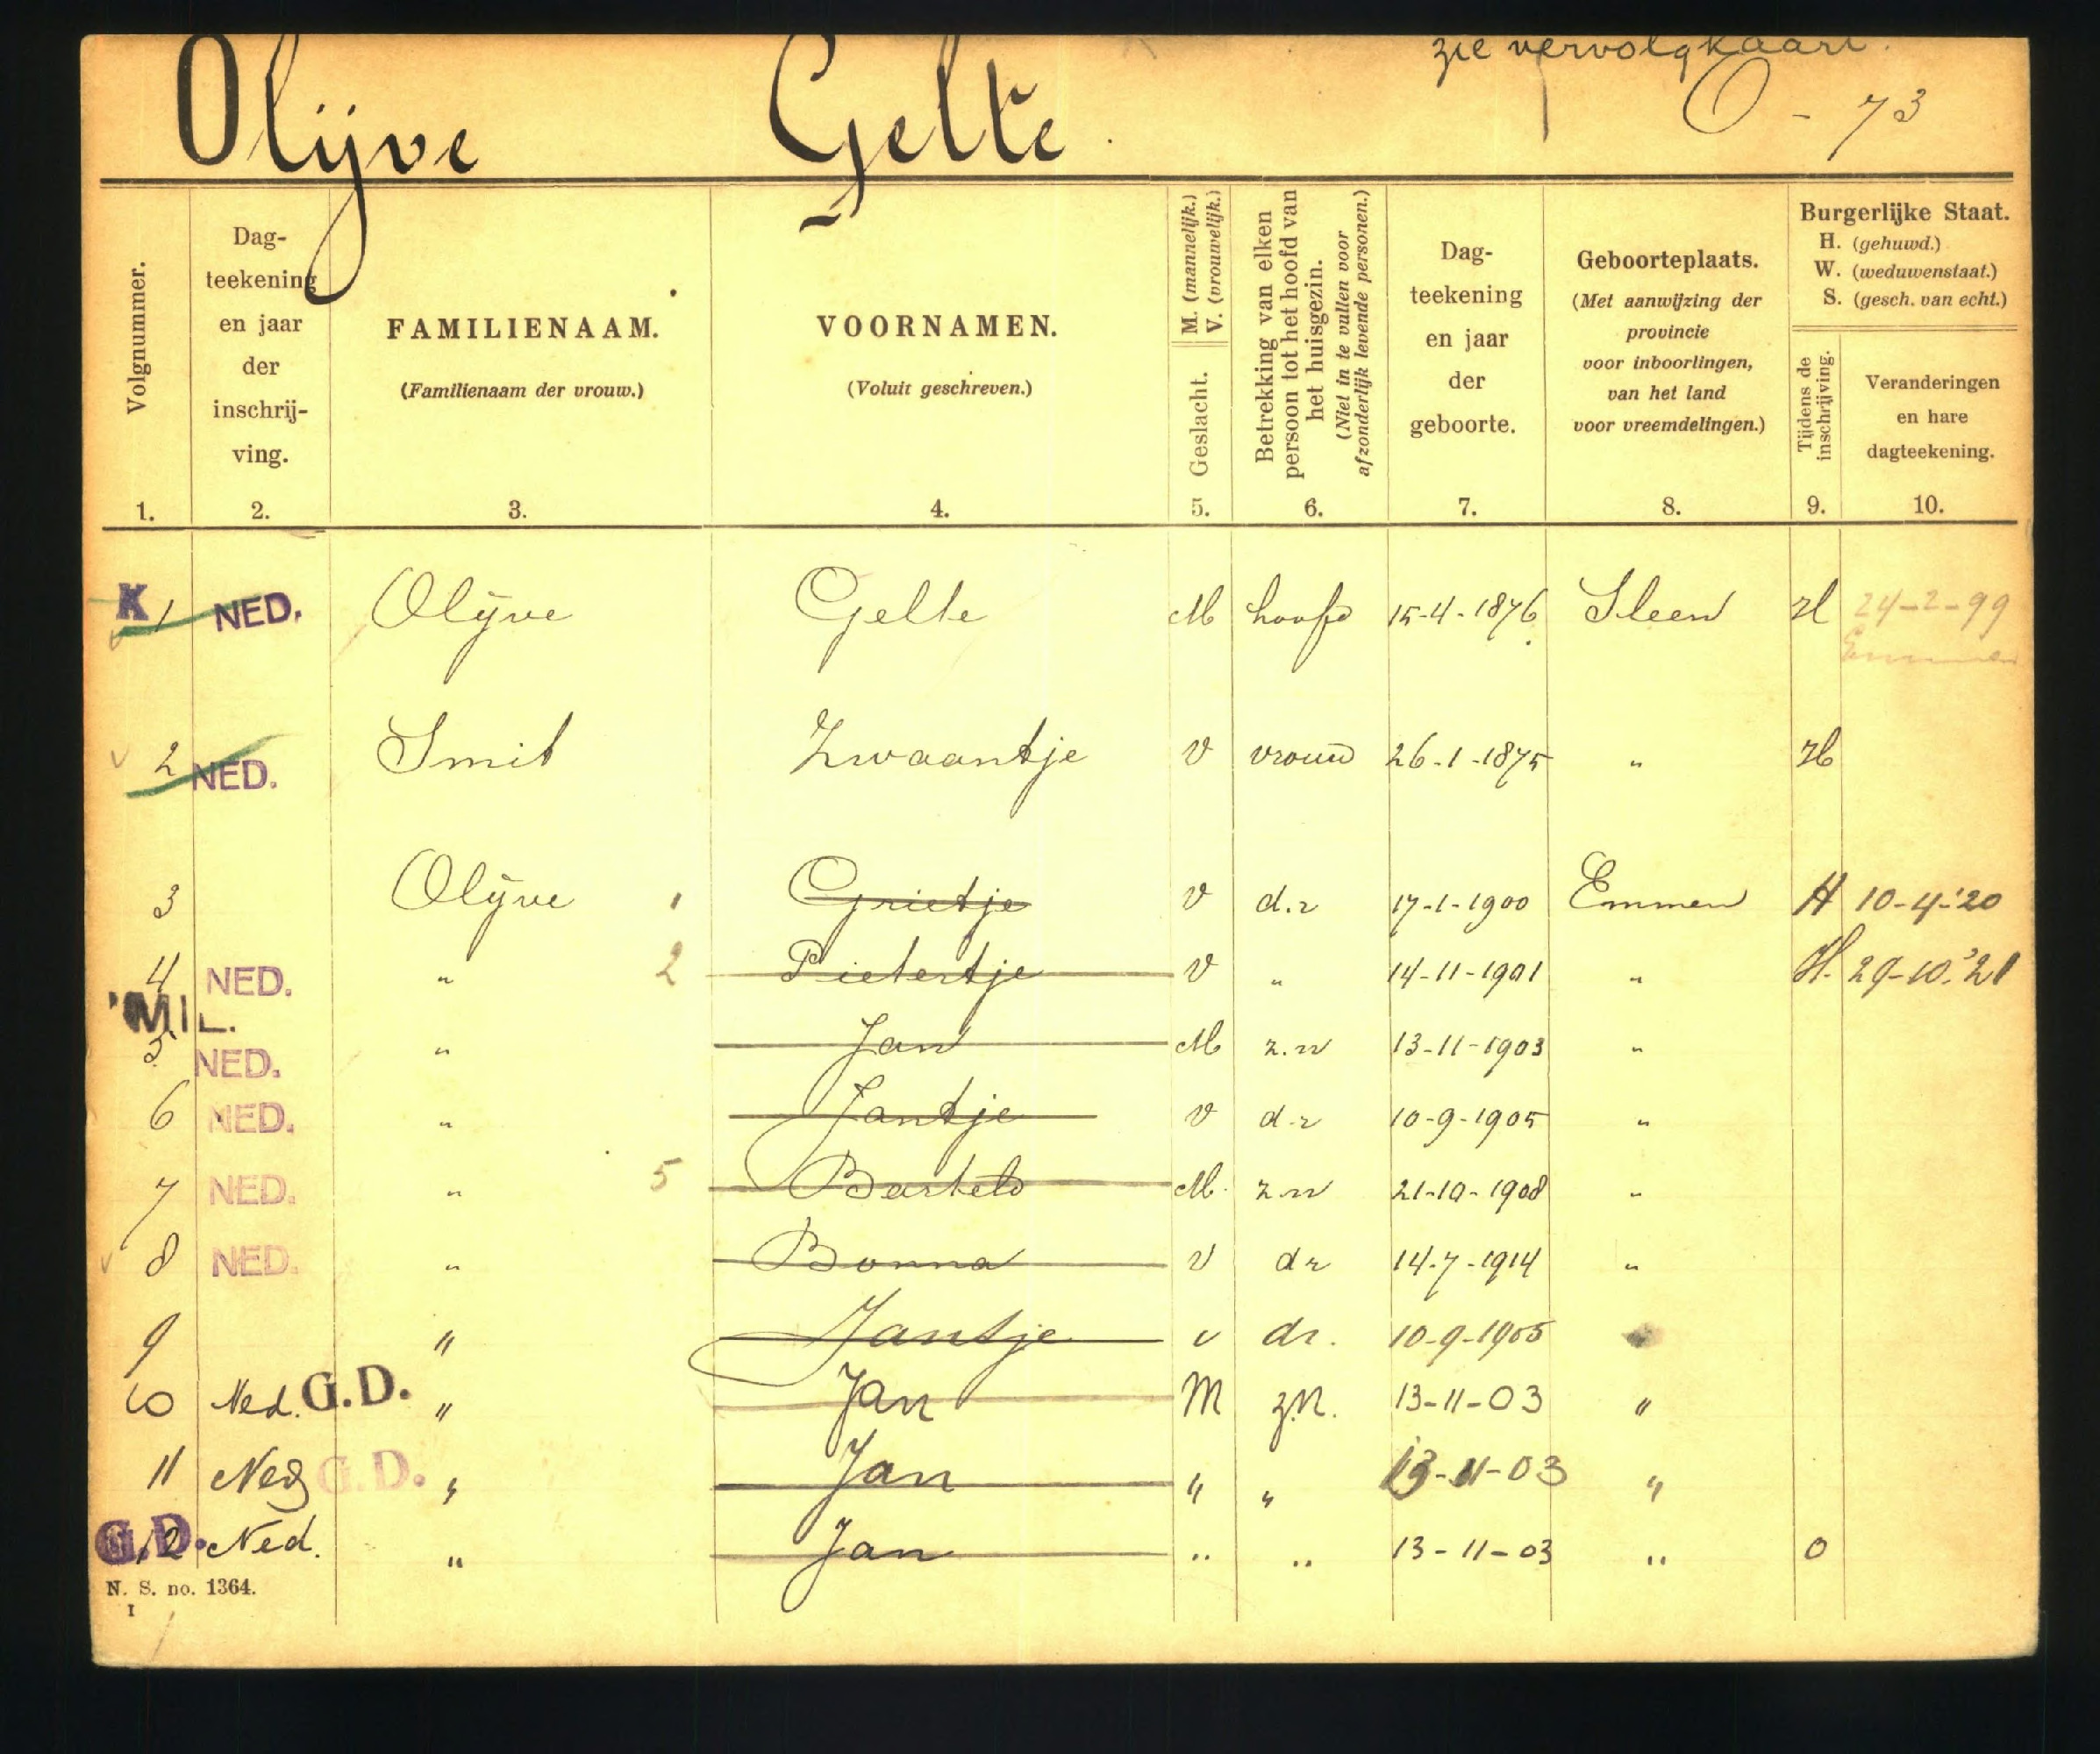 zie vervolgkaart.
Olijve Gelte. O - 73
Volgnummer.
1.
Dag-
teekening
en jaar
der
inschrij-
ving.
2.
FAMILIENAAM.
(Familienaam der vrouw.)
3.
VOORNAMEN.
(Voluit geschreven.)
4.
M. (mannelijk.)
V. (vrouwelijk.)
Geslacht.
5.
Betrekking van elken
persoon tot het hoofd van
het huisgezin.
(Niet in te vullen voor
afzonderlijk levende personen.)
6.
Dag-
teekening
en jaar
der
geboorte.
7.
Geboorteplaats.
(Met aanwijzing der
provincie
voor inboorlingen,
van het land
voor vreemdelingen.)
8.
Burgerlijke Staat.
H. (gehuwd.)
W. (weduwenstaat.)
S. (gesch. van echt.)
Tijdens de
inschrijving.
9.
Veranderingen
en hare
dagteekening.
10.
K 1 NED. Olijve Gelte M hoofd 15-4-1876 Sleen H 24-2-99
Emmen
2 NED. Smit Zwaantje V vrouw 26-1-1875 " H
3 Olijve 1 Grietje V d.r 17-1-1900 Emmen H 10-4-'20
4 NED. " 2 Pietertje V " 14-11-1901 " H. 29-10-'21
MIL.
5 NED. " Jan M z.n 13-11-1903 "
6 NED. " Jantje V d.r 10-9-1905 "
7 NED. " 5 Bartelo M. z.n 21-10-1908 "
8 NED. " Bonna V dr 14-7-1914 "
9 " Jantje v dr. 10-9-1905
10 Ned. G.D. " Jan M z.N. 13-11-03 "
11 Ned G.D. " Jan " " 13-11-03 "
G.D. 12 Ned. " Jan " " 13-11-03 " O
N. S. no. 1364.
I